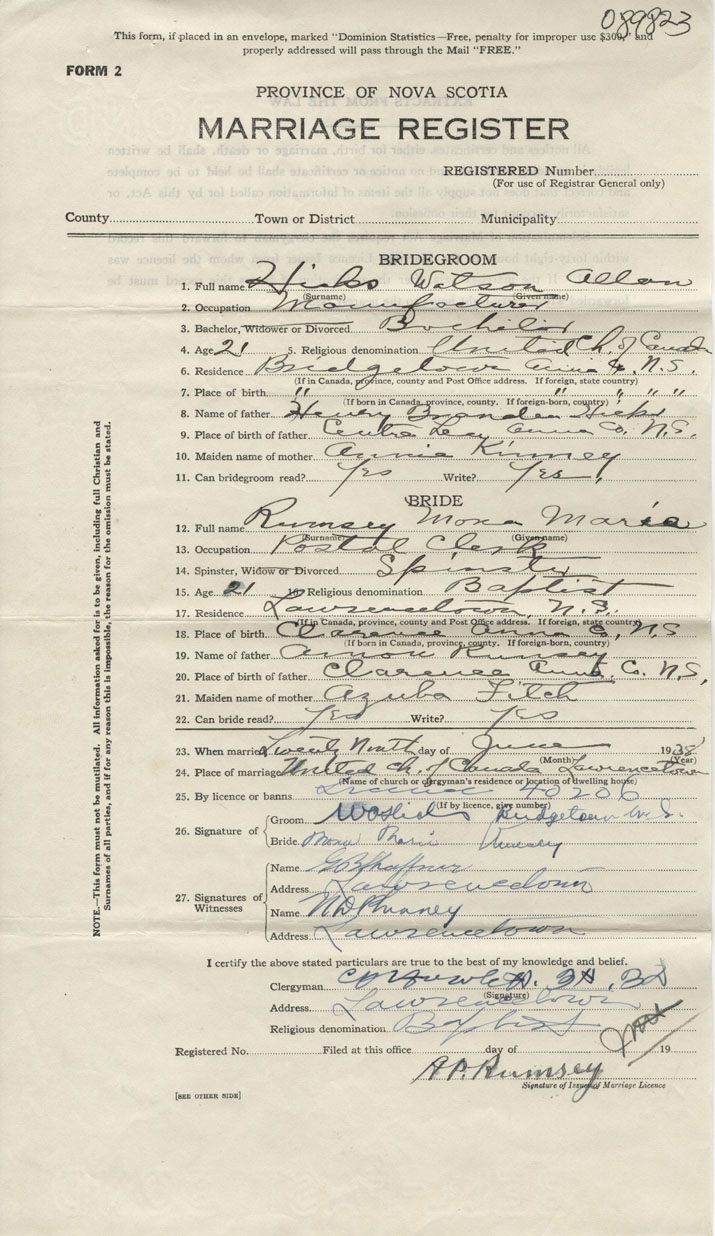 089823
This form, if placed in an envelope, marked "Dominion Statistics—Free, penalty for improper use $300," and
properly addressed will pass through the Mail "FREE."
FORM 2
PROVINCE OF NOVA SCOTIA
MARRIAGE REGISTER
REGISTERED Number
(For use of Registrar General only)
County Town or District Municipality
BRIDEGROOM
1. Full name Hicks Watson Allan
(Surname) (Given name)
2. Occupation Manufacturer
3. Bachelor, Widower or Divorced Bachelor
4. Age 21 5. Religious denomination United Ch. of Canada
6. Residence Bridgetown Anna Co. N.S.
(If in Canada, province, county and Post Office address. If foreign, state country)
7. Place of birth " " " " "
(If born in Canada, province, county. If foreign-born, country)
8. Name of father Henry Hicks
9. Place of birth of father Anna Co. N.S.
10. Maiden name of mother Annie Kinney
11. Can bridegroom read? Yes Write? Yes
BRIDE
12. Full name Rumsey Mona Maria
(Surname) (Given name)
13. Occupation Postal Clerk
14. Spinster, Widow or Divorced Spinster
15. Age 21 16 Religious denomination Baptist
17. Residence Lawrencetown, N.S.
(If in Canada, province, county and Post Office address. If foreign, state country)
18. Place of birth Clarence Anna Co, N.S
(If born in Canada, province, county. If foreign-born, country)
19. Name of father Rumsey
20. Place of birth of father Clarence Anna. Co. N.S.
21. Maiden name of mother Azuba Fitch
22. Can bride read? Yes Write? Yes
23. When married Twenty Ninth day of June 1938
(Month) (Year)
24. Place of marriage United Ch. of Canada Lawrencetown
(Name of church or clergyman's residence or location of dwelling house)
25. By licence or banns Licence 40206
(If by licence, give number)
26. Signature of
Groom WA Hicks Bridgetown N.S.
Bride Mona Marie Rumsey
27. Signatures of Witnesses
Name Shaffner
Address Lawrencetown
Name Phinney
Address Lawrencetown
I certify the above stated particulars are true to the best of my knowledge and belief.
Clergyman
(Signature)
Address Lawrencetown
Religious denomination Baptist
Registered No. Filed at this office day of 19
Rumsey
Signature of Issuer of Marriage Licence
[SEE OTHER SIDE]
NOTE.—This form must not be mutilated. All information asked for is to be given, including full Christian and
Surnames of all parties, and if for any reason this is impossible, the reason for the omission must be stated.